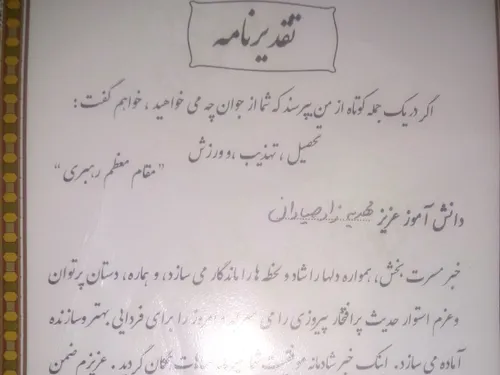 تقدیرنامه
اگر در یک جمله کوتاه از من بپرسند که شما از جوان چه می خواهید ، خواهم گفت :
تحصیل ، تهذیب ،و ورزش
"مقام معظم رهبری"
دانش آموز عزیز
خبر مسرت بخش، همواره دلها را شاد و لحظه ها را ماندگار می سازد، و هماره ، دستان پرتوان
و عزم استوار حدیث پر افتخار پیروزی را می امروز را برای فردایی بهتر و سازنده
آماده می سازد. اینک خبر شادمانه موفقیت همگان گردید . عزیزم ضمن